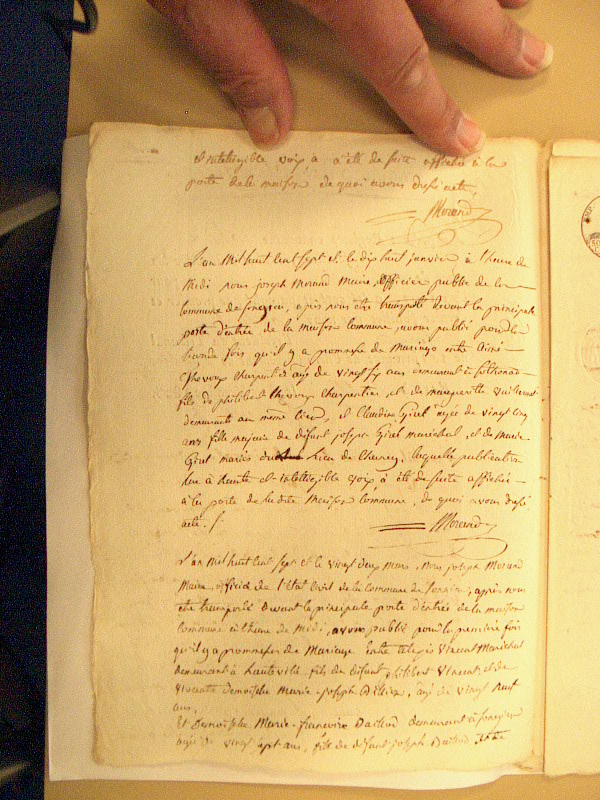 et intelligible voix, a été de suite affichée à la
porte de la maison de quoi avons dressé acte,
Morand
L'an mil huit cent sept et le dix huit janvier à l'heure de
midi nous joseph Morand Maire, officier public de la
commune de songieu, après nous être transporté devant la principale
porte d'entrée de la maison commune, avons publié pour la
seconde fois qu'il y a promesse de mariage entre aimé
Thevoux charpentier agé de vingt six ans demeurant à
fils de philibert Thevoux charpentier, et de marguerite
demeurants au même lieu, et Claudine Girel agée de vingt cinq
ans fille majeure de défunt joseph Girel maréchal, et de marie
Girel mariés lieu de laquelle publication
lue à haute et intelligible voix, a été de suite affichée
à la porte de la dite maison commune, de quoi avons dressé
acte. /.
Morand
L'an mil huit cent sept et le vingt deux mars, nous joseph Morand
Maire, officier de l'état civil de la commune de songieu, après nous
être transporté devant la principale porte d'entrée de la maison
commune à l'heure de midi, avons publié pour la première fois
qu'il y a promesse de mariage entre vincent maréchal
demeurant à hauteville fils de défunt philibert vincent, et de
vivante demoiselle marie-joseph agé de vingt huit
ans,
Et demoiselle Marie-françoise demeurant à songieu
agée de vingt sept ans, fille de défunt joseph